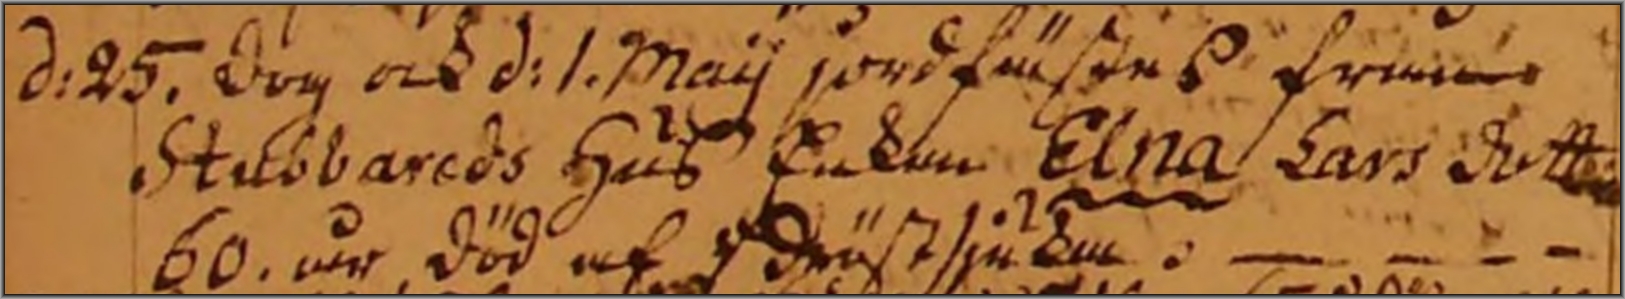 d: 25. dog och d: 1. Maij jordfästes från
Stubbareds Hus Enkan Elna Lars dotter
60. år död af Bröstsjukan : — — - -